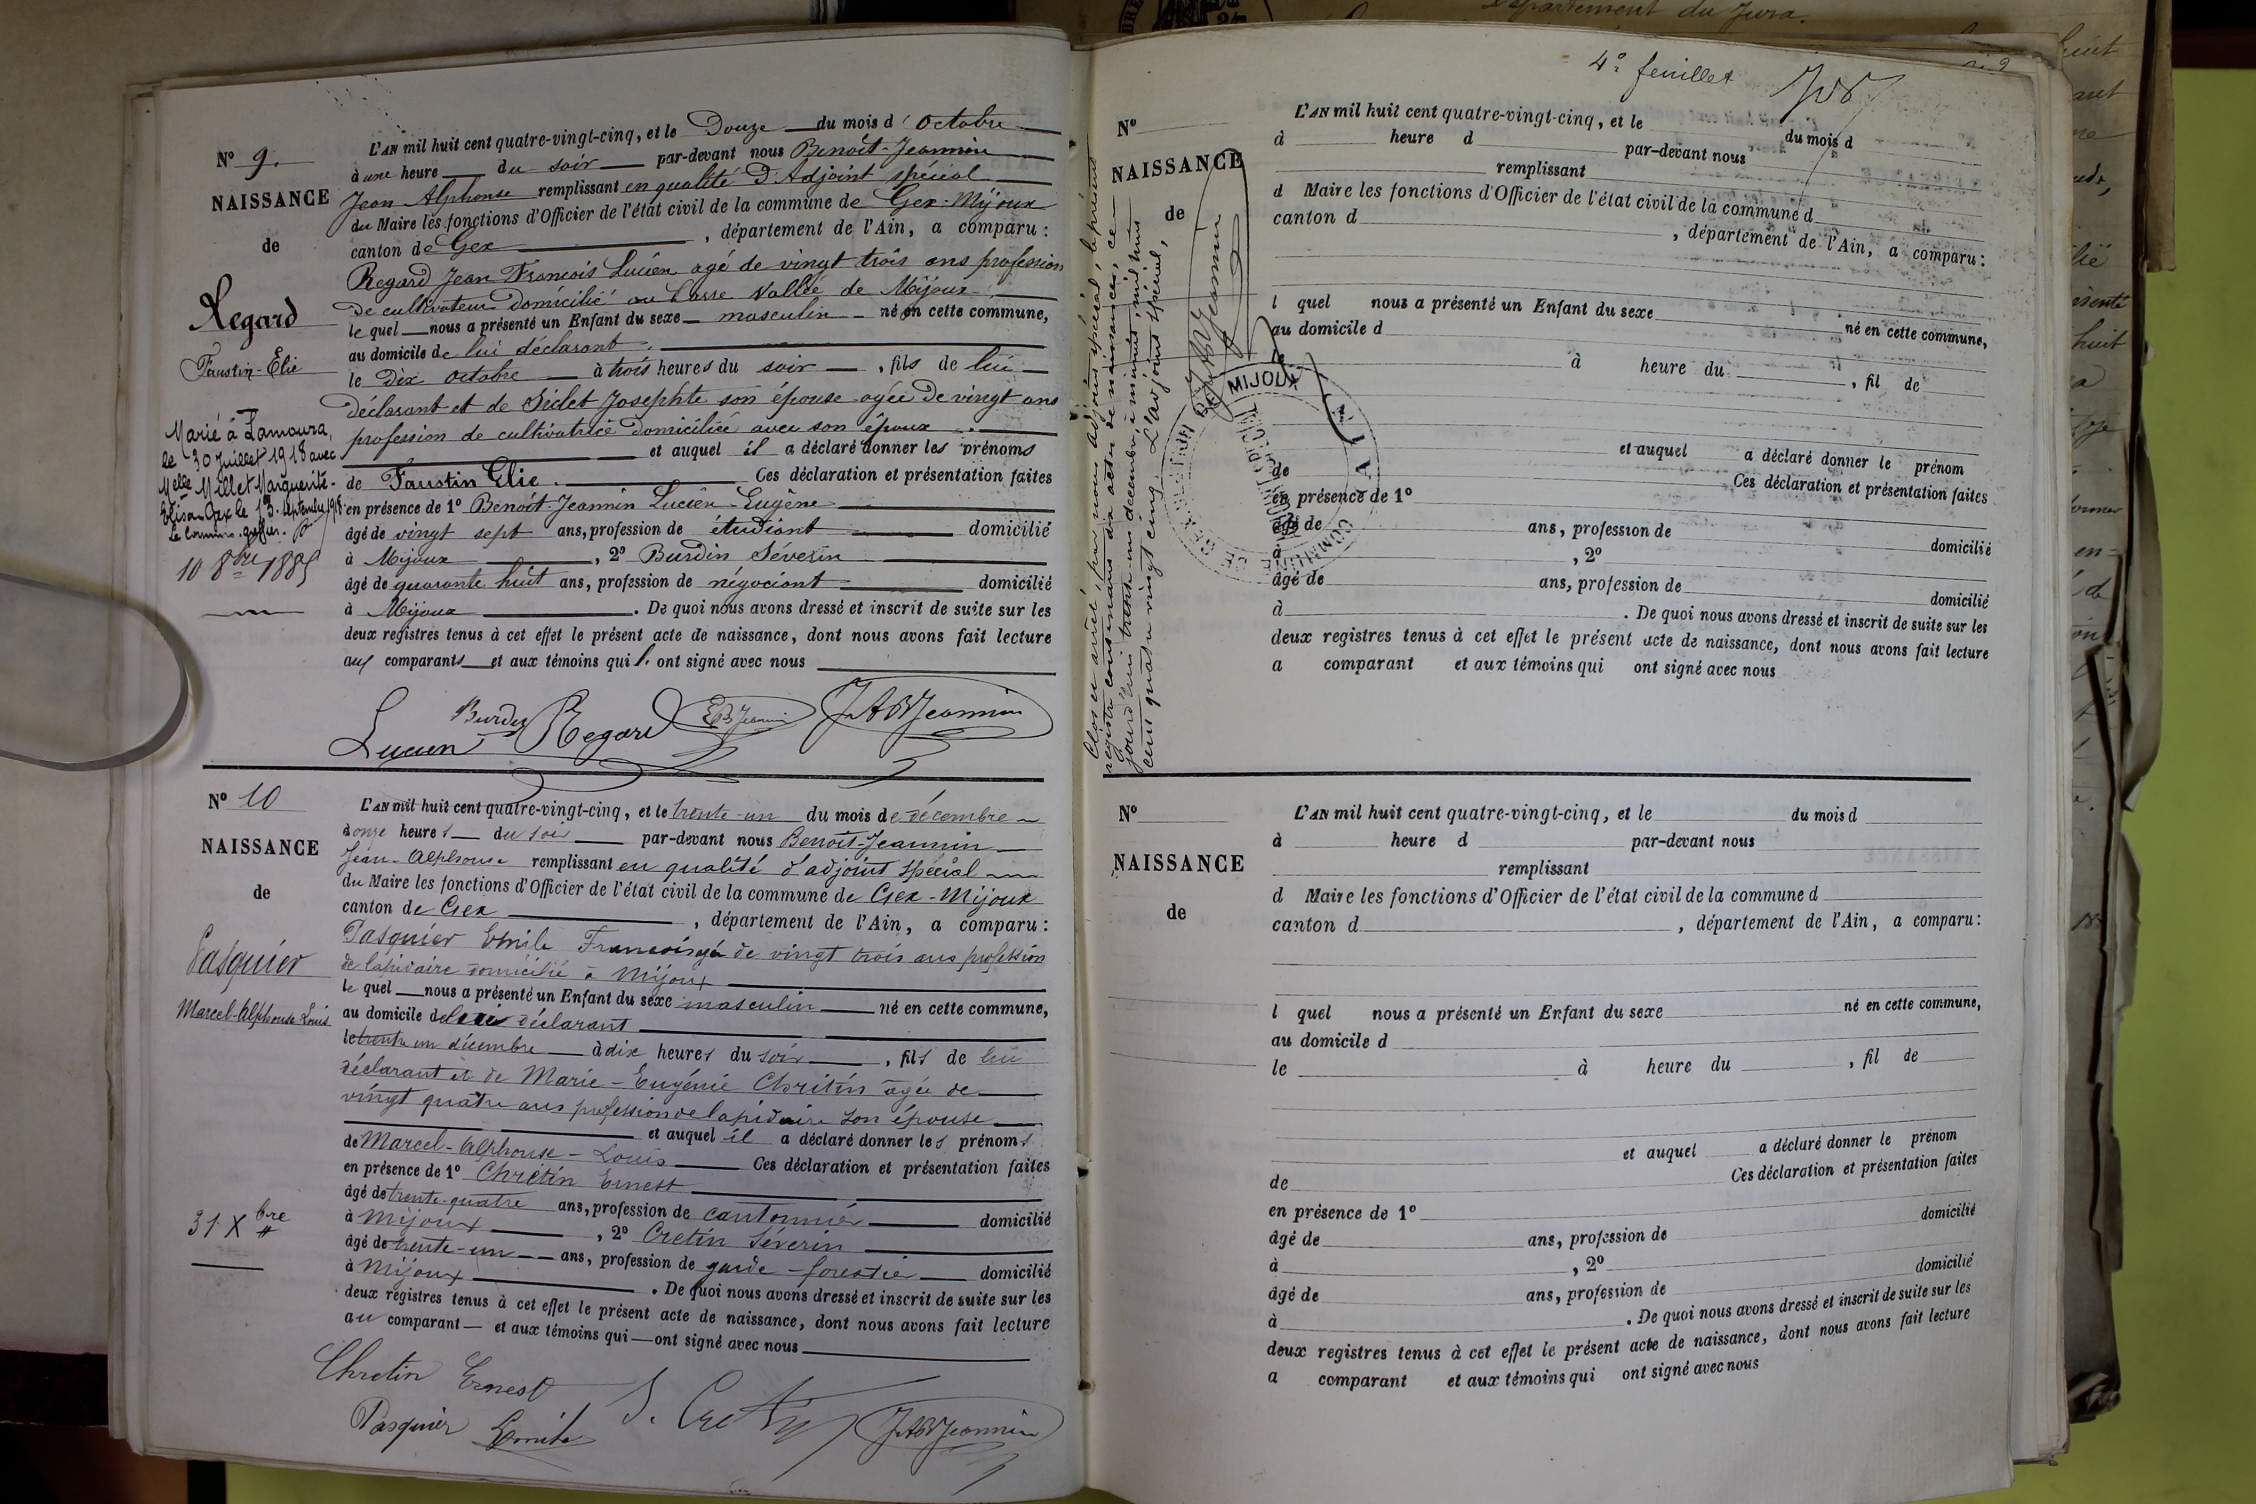 N° 9.
NAISSANCE
de
Regard
Faustin-Elie
Marié à Lamoura,
le 30 Juillet 1918 avec
Melle Millet Marguerite-
Gex le 13 septembre 1918
10 8bre 1885
L'AN mil huit cent quatre-vingt-cinq, et le Douze du mois d'Octobre
à une heure du soir par-devant nous Benoit-Jeannin
Jean Alphonse remplissant en qualité d'Adjoint spécial
du Maire les fonctions d'Officier de l'état civil de la commune de Gex-Mijoux
canton de Gex , département de l'Ain, a comparu :
Regard Jean François Lucien agé de vingt trois ans profession
de cultivateur domicilié au basse Vallée de Mijoux
le quel nous a présenté un Enfant du sexe masculin né en cette commune,
au domicile de lui déclarant.
le Dix octobre à trois heures du soir , fils de lui
déclarant et de Josephte son épouse agée de vingt ans
profession de cultivatrice domiciliée avec son époux
et auquel il a déclaré donner les prénoms
de Faustin Elie. Ces déclaration et présentation faites
en présence de 1° Benoit-Jeannin Lucien-Eugène
âgé de vingt sept ans, profession de étudiant domicilié
à Mijoux , 2° Burdin Séverin
âgé de quarante huit ans, profession de négociant domicilié
à Mijoux . De quoi nous avons dressé et inscrit de suite sur les
deux registres tenus à cet effet le présent acte de naissance, dont nous avons fait lecture
aux comparants et aux témoins qui ont signé avec nous
Burdin Regard EBJeannin JABJeannin
Lucien
N° 10
NAISSANCE
de
Pasquier
Marcel-Alphonse Louis
31 Xbre
L'AN mil huit cent quatre-vingt-cinq, et le trente-un du mois de décembre
à onze heures du soir par-devant nous Benoit-Jeannin
Jean-Alphonse remplissant en qualité d'adjoint spécial
du Maire les fonctions d'Officier de l'état civil de la commune de Gex-Mijoux
canton de Gex , département de l'Ain, a comparu :
Pasquier Emile François agé de vingt trois ans profession
de lapidaire domicilié à Mijoux
le quel nous a présenté un Enfant du sexe masculin né en cette commune,
au domicile de lui déclarant
le trente un décembre à dix heures du soir , fils de lui
déclarant et de Marie-Eugénie Chrétin agée de
vingt quatre ans profession de lapidaire son épouse
et auquel il a déclaré donner les prénoms
de Marcel-Alphonse-Louis Ces déclaration et présentation faites
en présence de 1° Chrétin Ernest
âgé de trente-quatre ans, profession de cantonnier domicilié
à Mijoux , 2° Cretin Séverin
âgé de trente-un ans, profession de garde-forestier domicilié
à Mijoux . De quoi nous avons dressé et inscrit de suite sur les
deux registres tenus à cet effet le présent acte de naissance, dont nous avons fait lecture
au comparant et aux témoins qui ont signé avec nous
Chretin Ernest S. Cretin
Pasquier Emile JABJeannin
4e feuillet
Clos et arrêté, par nous adjoint spécial, le présent
registre contenant dix actes de naissances, ce
jourd'hui trente un décembre à minuit, mil huit
cent quatre vingt cinq. L'adjoint spécial,
JABJeannin
MIJOUX
AIN
COMMUNE DE GEX
N°
NAISSANCE
de
L'AN mil huit cent quatre-vingt-cinq, et le du mois d
à heure d par-devant nous
remplissant
d Maire les fonctions d'Officier de l'état civil de la commune d
canton d , département de l'Ain, a comparu :
l quel nous a présenté un Enfant du sexe né en cette commune,
au domicile d
le à heure du , fil de
et auquel a déclaré donner le prénom
de Ces déclaration et présentation faites
en présence de 1°
âgé de ans, profession de domicilié
à , 2°
âgé de ans, profession de domicilié
à . De quoi nous avons dressé et inscrit de suite sur les
deux registres tenus à cet effet le présent acte de naissance, dont nous avons fait lecture
a comparant et aux témoins qui ont signé avec nous
N°
NAISSANCE
de
L'AN mil huit cent quatre-vingt-cinq, et le du mois d
à heure d par-devant nous
remplissant
d Maire les fonctions d'Officier de l'état civil de la commune d
canton d , département de l'Ain, a comparu :
l quel nous a présenté un Enfant du sexe né en cette commune,
au domicile d
le à heure du , fil de
et auquel a déclaré donner le prénom
de Ces déclaration et présentation faites
en présence de 1°
âgé de ans, profession de domicilié
à , 2°
âgé de ans, profession de domicilié
à . De quoi nous avons dressé et inscrit de suite sur les
deux registres tenus à cet effet le présent acte de naissance, dont nous avons fait lecture
a comparant et aux témoins qui ont signé avec nous
Département du Jura.